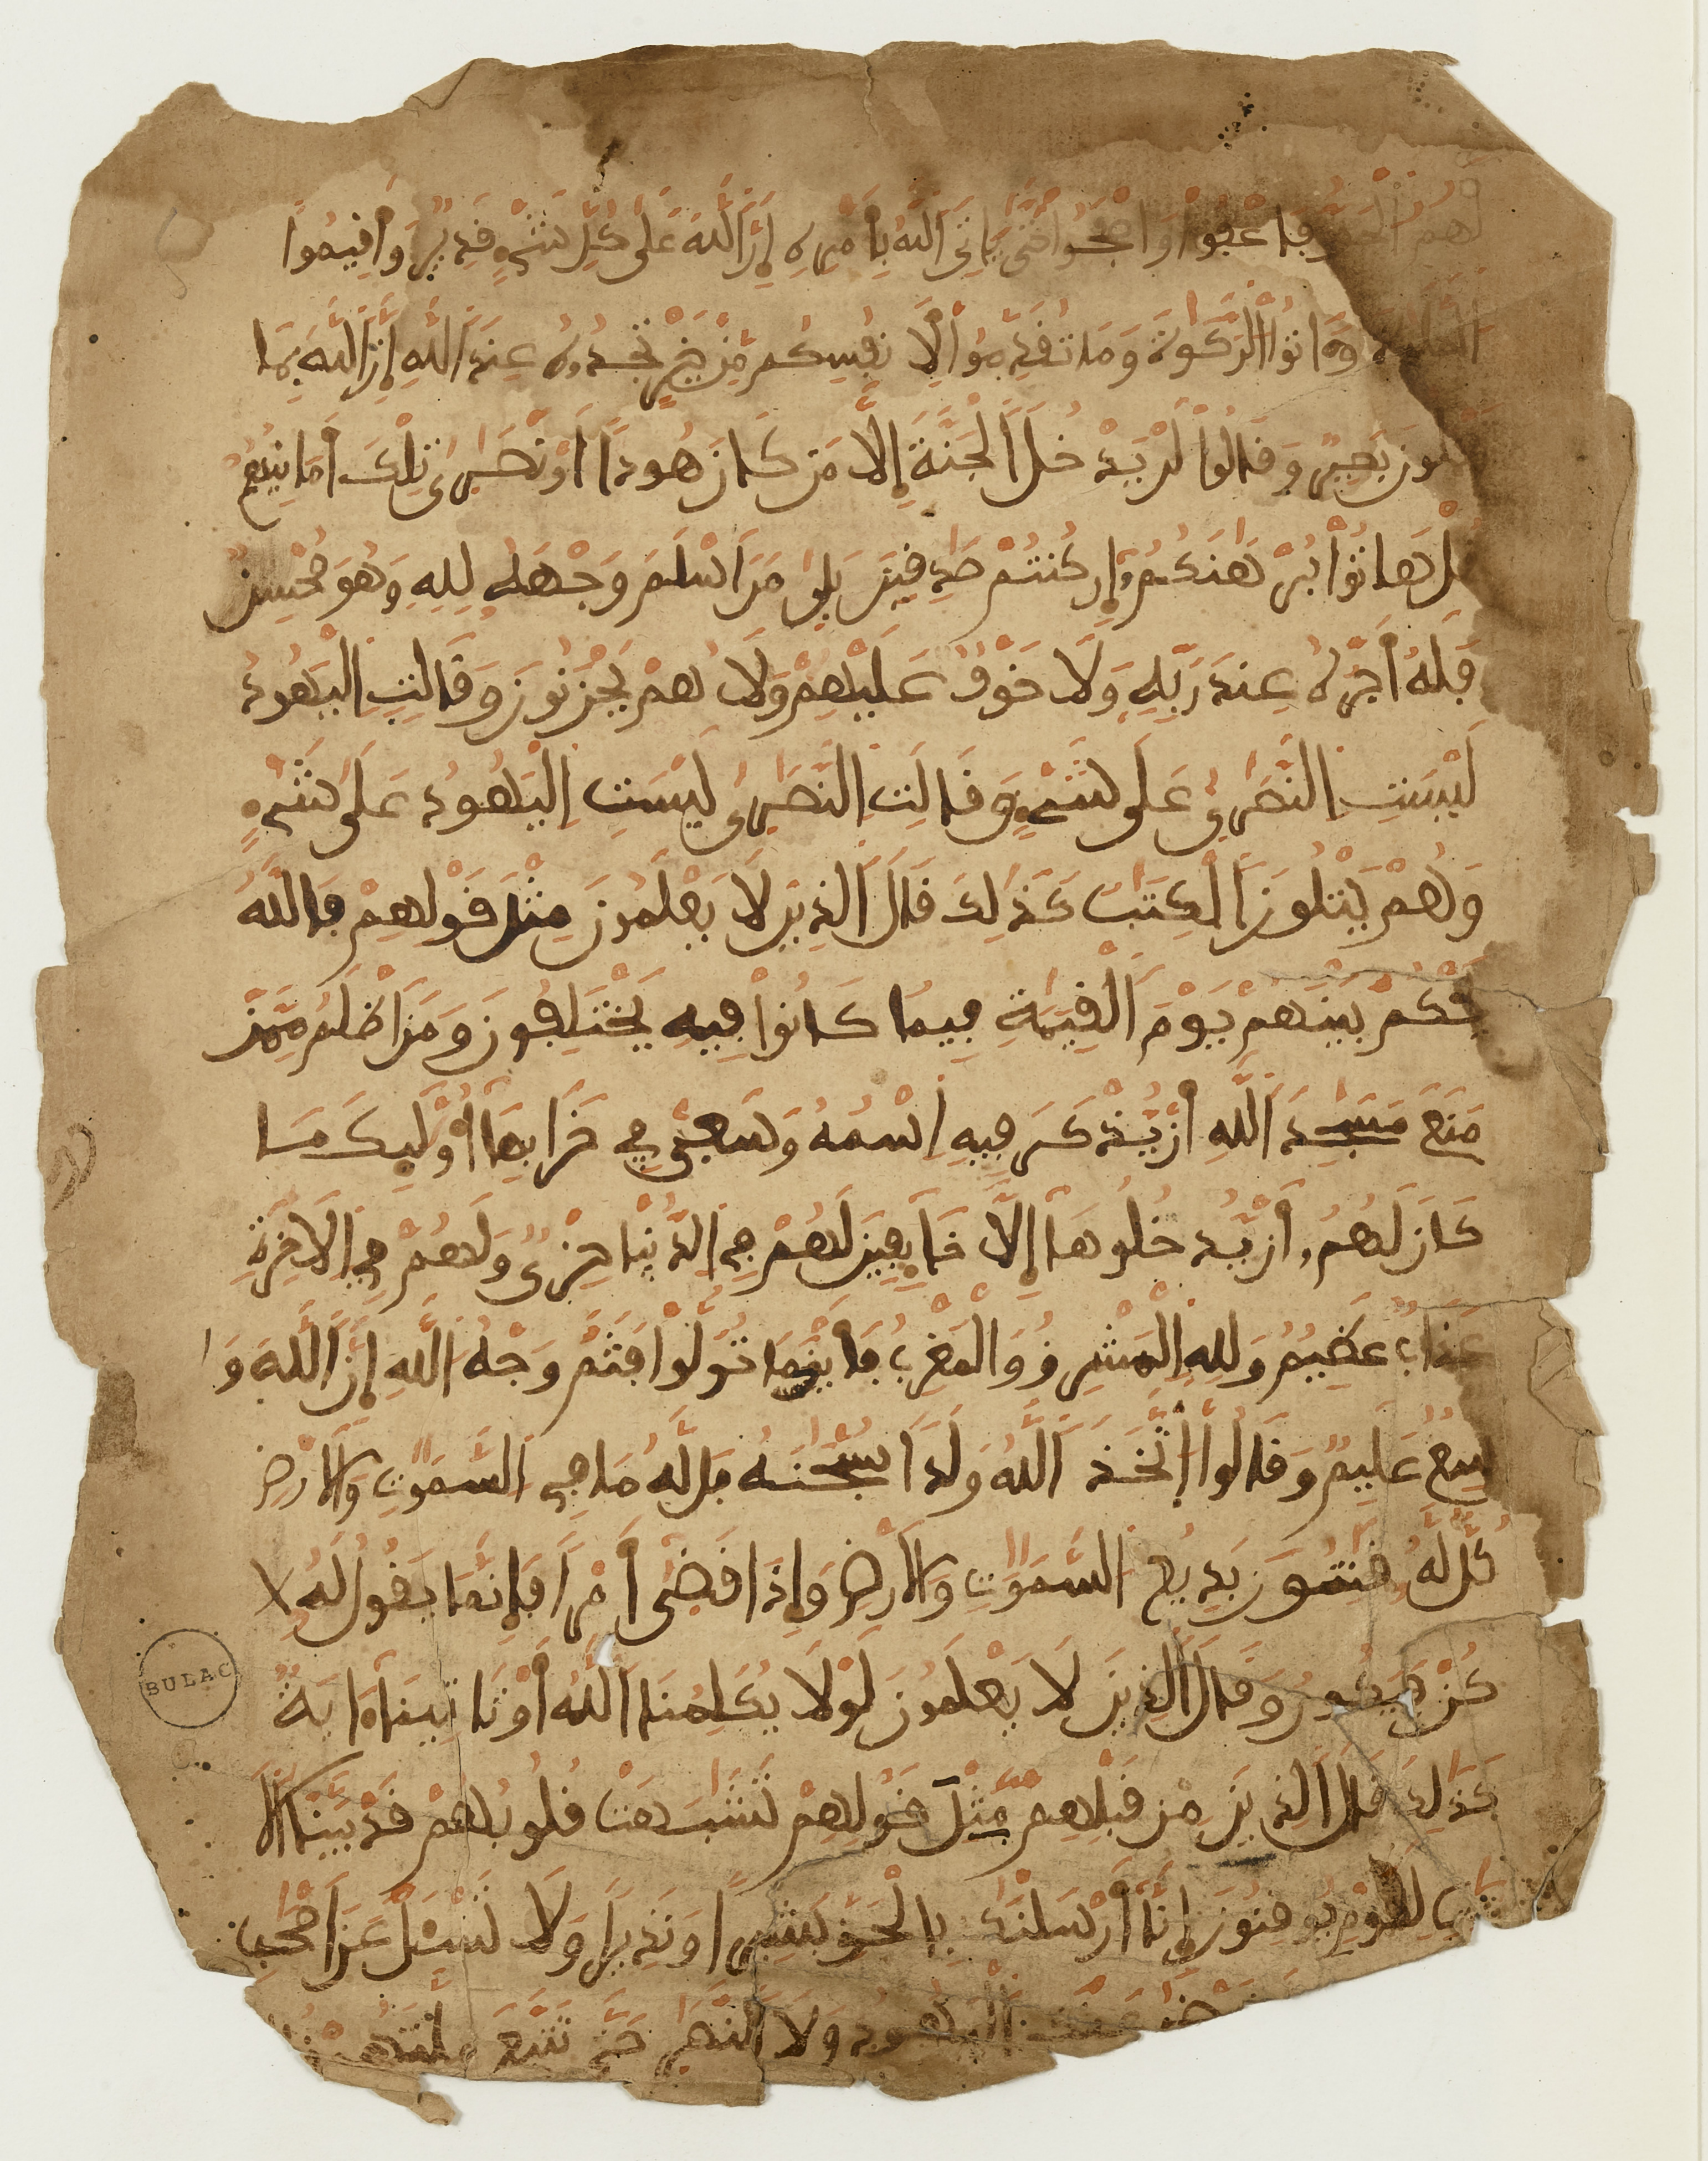 لَهُمُ الْحَقُّ فَاعْفُوا وَاصْفَحُوا حَتَّىٰ يَاتِيَ اَللَّهُ بِأَمْرِهِ إِنَّ اَللَّهَ عَلَىٰ كُلِّ شَيْءٍ قَدِيرٌ وَأَقِيمُوا
اَلصَّلَوٰةَ وَءَاتُوا الزَّكَوٰةَ وَمَا تُقَدِّمُوا لِأَنفُسِكُم مِّنْ خَيْرٍ تَجِدُوهُ عِندَ اَللَّهِ إِنَّ اَللَّهَ بِمَا
تَعْمَلُونَ بَصِيرٌ وَقَالُوا لَنْ يَّدْخُلَ اَلْجَنَّةَ إِلَّا مَن كَانَ هُودًا اَوْ نَصَٰرَىٰ تِلْكَ أَمَانِيُّهُمْ
قُلْ هَاتُوا بُرْهَٰنَكُمُ إِن كُنتُمْ صَٰدِقِينَ بَلَىٰ مَنَ اَسْلَمَ وَجْهَهُ لِلهِ وَهُوَ مُحْسِنٌ
فَلَهُ أَجْرُهُ عِندَ رَبِّهِ وَلَا خَوْفٌ عَلَيْهِمْ وَلَا هُمْ يَحْزَنُونَ وَقَالَتِ اِلْيَهُودُ
لَيْسَتِ اِلنَّصَٰرَىٰ عَلَىٰ شَيْءٍ وَقَالَتِ اِلنَّصَٰرَىٰ لَيْسَتِ اِلْيَهُودُ عَلَىٰ شَيْءٍ
وَهُمْ يَتْلُونَ اَلْكِتَٰبَ كَذَٰلِكَ قَالَ اَلذِينَ لَا يَعْلَمُونَ مِثْلَ قَوْلِهِمْ فَاللَّهُ
يَحْكُمُ بَيْنَهُمْ يَوْمَ اَلْقِيَٰمَةِ فِيمَا كَانُوا فِيهِ يَخْتَلِفُونَ وَمَنَ اَظْلَمُ مِمَّن
مَّنَعَ مَسَٰجِدَ اَللَّهِ أَنْ يُّذْكَرَ فِيهِ اَسْمُهُ وَسَعَىٰ فِي خَرَابِهَا أُوْلَٰئِكَ مَا
كَانَ لَهُمُ أَنْ يَّدْخُلُوهَا إِلَّا خَائِفِينَ لَهُمْ فِي اِلدُّنْيَا خِزْيٌ وَلَهُمْ فِي اِلَاخِرَةِ
عَذَابٌ عَظِيمٌ وَلِلهِ اِلْمَشْرِقُ وَالْمَغْرِبُ فَأَيْنَمَا تُوَلُّوا فَثَمَّ وَجْهُ اُللَّهِ إِنَّ اَللَّهَ وَا
سِعٌ عَلِيمٌ وَقَالُوا اُتَّخَذَ اَللَّهُ وَلَدًا سُبْحَٰنَهُ بَل لَّهُ مَا فِي اِلسَّمَٰوَٰتِ وَالَارْضِ
كُلٌّ لَّهُ قَٰنِتُونَ بَدِيعُ اُلسَّمَٰوَٰتِ وَالَارْضِ وَإِذَا قَضَىٰ أَمْرًا فَإِنَّمَا يَقُولُ لَهُ
كُنْ فَيَكُونُ وَقَالَ اَلذِينَ لَا يَعْلَمُونَ لَوْلَا يُكَلِّمُنَا اَللَّهُ أَوْ تَاتِينَا ءَايَةٌ
كَذَٰلِكَ قَالَ اَلذِينَ مِن قَبْلِهِم مِّثْلَ قَوْلِهِمْ تَشَٰبَهَتْ قُلُوبُهُمْ قَدْ بَيَّنَّا اَلَا
يَٰتِ لِقَوْمٍ يُوقِنُونَ إِنَّا أَرْسَلْنَٰكَ بِالْحَقِّ بَشِيرًا وَنَذِيرًا وَلَا تَسْئَلْ عَنَ اَصْحَٰبِ
تَرْضَىٰ عَنكَ اَلْيَهُودُ وَلَا اَلنَّصَٰرَىٰ حَتَّىٰ تَتَّبِعَ مِلَّتَهُمْ
BULAC